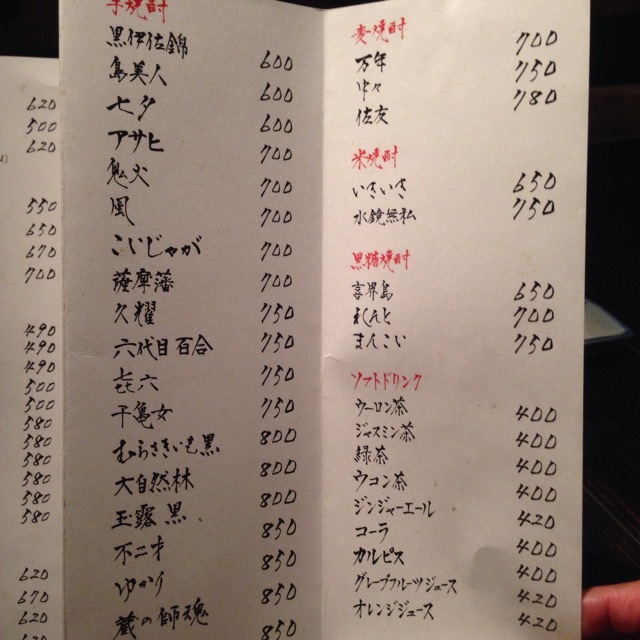 620
500
620
550
650
670
700
490
490
490
500
500
580
580
580
580
580
620
670
620
620
芋焼酎
黒伊佐錦 600
島美人 600
七夕 600
アサヒ 700
鬼火 700
風 700
こいじゃが 700
薩摩藩 700
久耀 750
六代目百合 750
㐂六 750
千亀女 750
むらさきいも黒 800
大自然林 800
玉露 黒 800
不二才 850
ゆかり 850
蔵の師魂 850
850
麦焼酎
万年 700
中々 750
佐友 780
米焼酎
いきいき 650
水鏡無私 750
黒糖焼酎
喜界島 650
れんと 700
まんこい 750
ソフトドリンク
ウーロン茶 400
ジャスミン茶 400
緑茶 400
ウコン茶 400
ジンジャーエール 400
コーラ 420
カルピス 400
グレープフルーツジュース 420
オレンジジュース 420